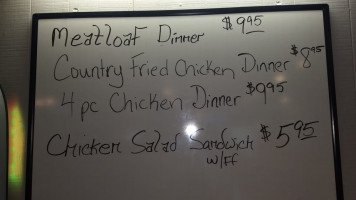 Meatloaf Dinner $9.95
Country Fried Chicken Dinner $8.95
4 pc Chicken Dinner $9.95
Chicken Salad Sandwich $5.95
w/FF